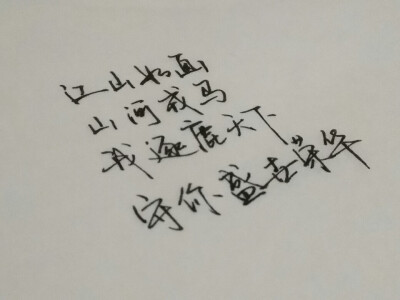 江山如画
山河戎马
我逐鹿天下
守你盛世荣华